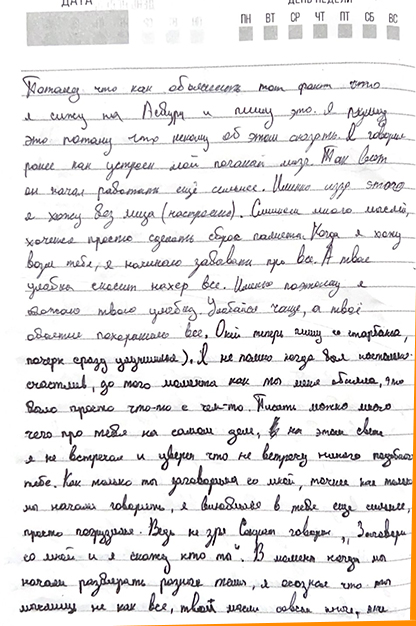 ДАТА
ДЕНЬ НЕДЕЛИ
ПН ВТ СР ЧТ ПТ СБ ВС
Потому что как объяснить тот факт что
я сижу на и пишу это. Я пишу
это потому что некому об этом сказать. Я говорил
ранее как устроен мой поганый мозг. Так вот
он начал работать ещё сильнее. Именно из-за этого
я хожу без лица (настроения). Слишком много мыслей,
хочется просто сделать сброс памяти. Когда я хожу
возле тебя, я начинаю забывать про все. А твоя
улыбка сносит нахер все. Именно поэтому я
твою улыбку. Улыбайся чаще, а твоё
объятие похоронило все. Окей теперь пишу со
почерк сразу улучшился). Я не помню когда был настолько
счастлив, до того момента как ты меня обняла, это
было просто что-то с чем-то. Писать можно много
чего про тебя на самом деле, на этом свете
я не встречал и уверен что не встречу никого подобного
тебе. Как только ты заговорила со мной, точнее как только
мы начали говорить, я влюбился в тебя ещё сильнее,
просто Ведь не зря Сократ говорил, „Заговори
со мной и я скажу кто ты". В момент когда мы
начали разбирать разные темы, я осознал что ты
мыслишь не как все, твои мысли совсем иные, они